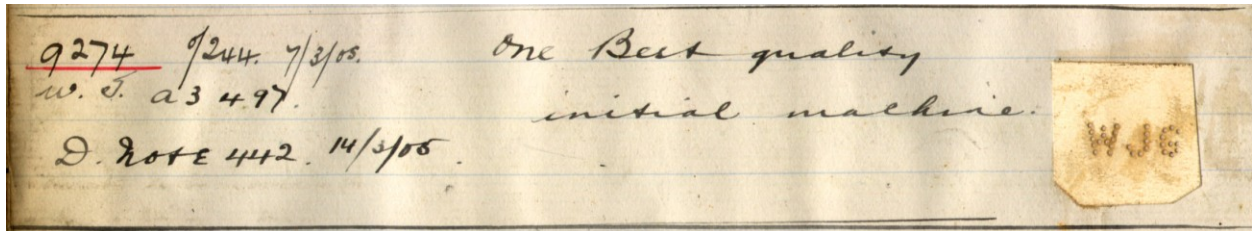 9274 O/244. 7/3/05. One Best quality
W. T. a3 497. initial machine.
D. Note 442. 14/3/05.
WJC